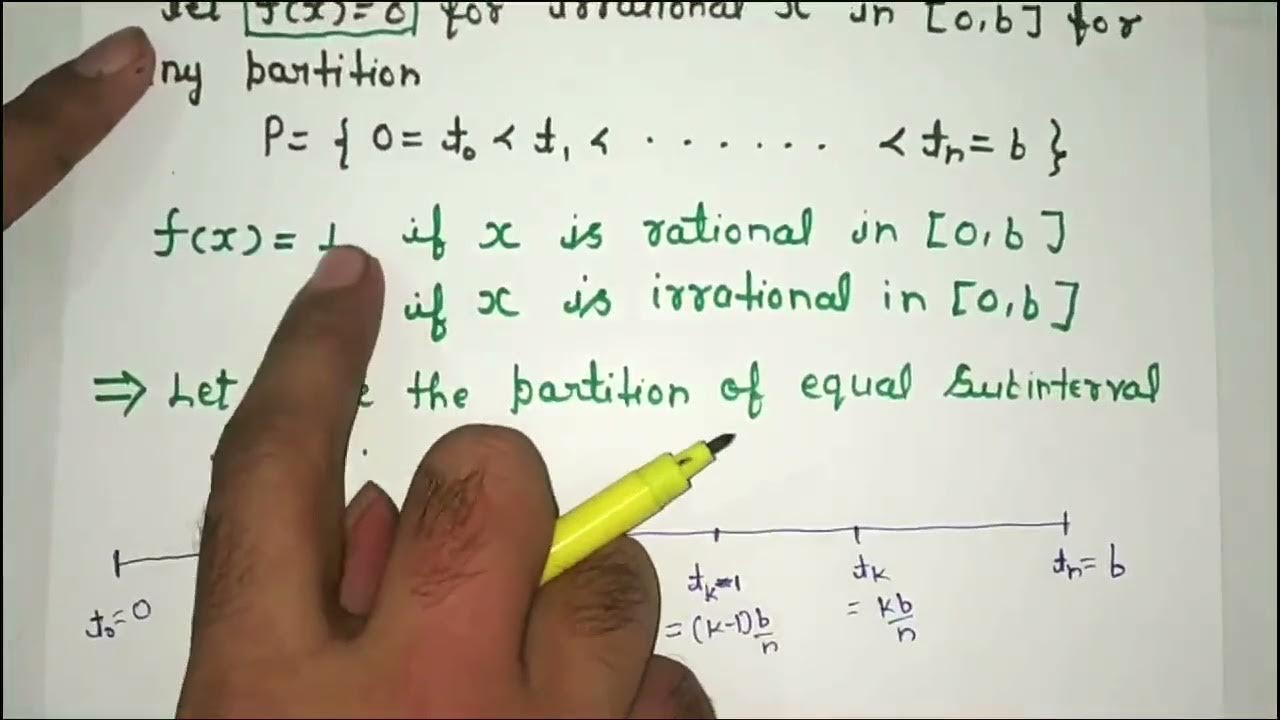 f(x)=0 for irrational x in [0,b] for
ny partition
P= { 0= t₀ < t₁ < . . . . . . < tₙ= b }
f(x)= 1 if x is rational in [0,b]
if x is irrational in [0,b]
⇒ Let the partition of equal Subinterval
t₀=0
tₖ₋₁
= (k-1)b/n
tₖ
= kb/n
tₙ= b